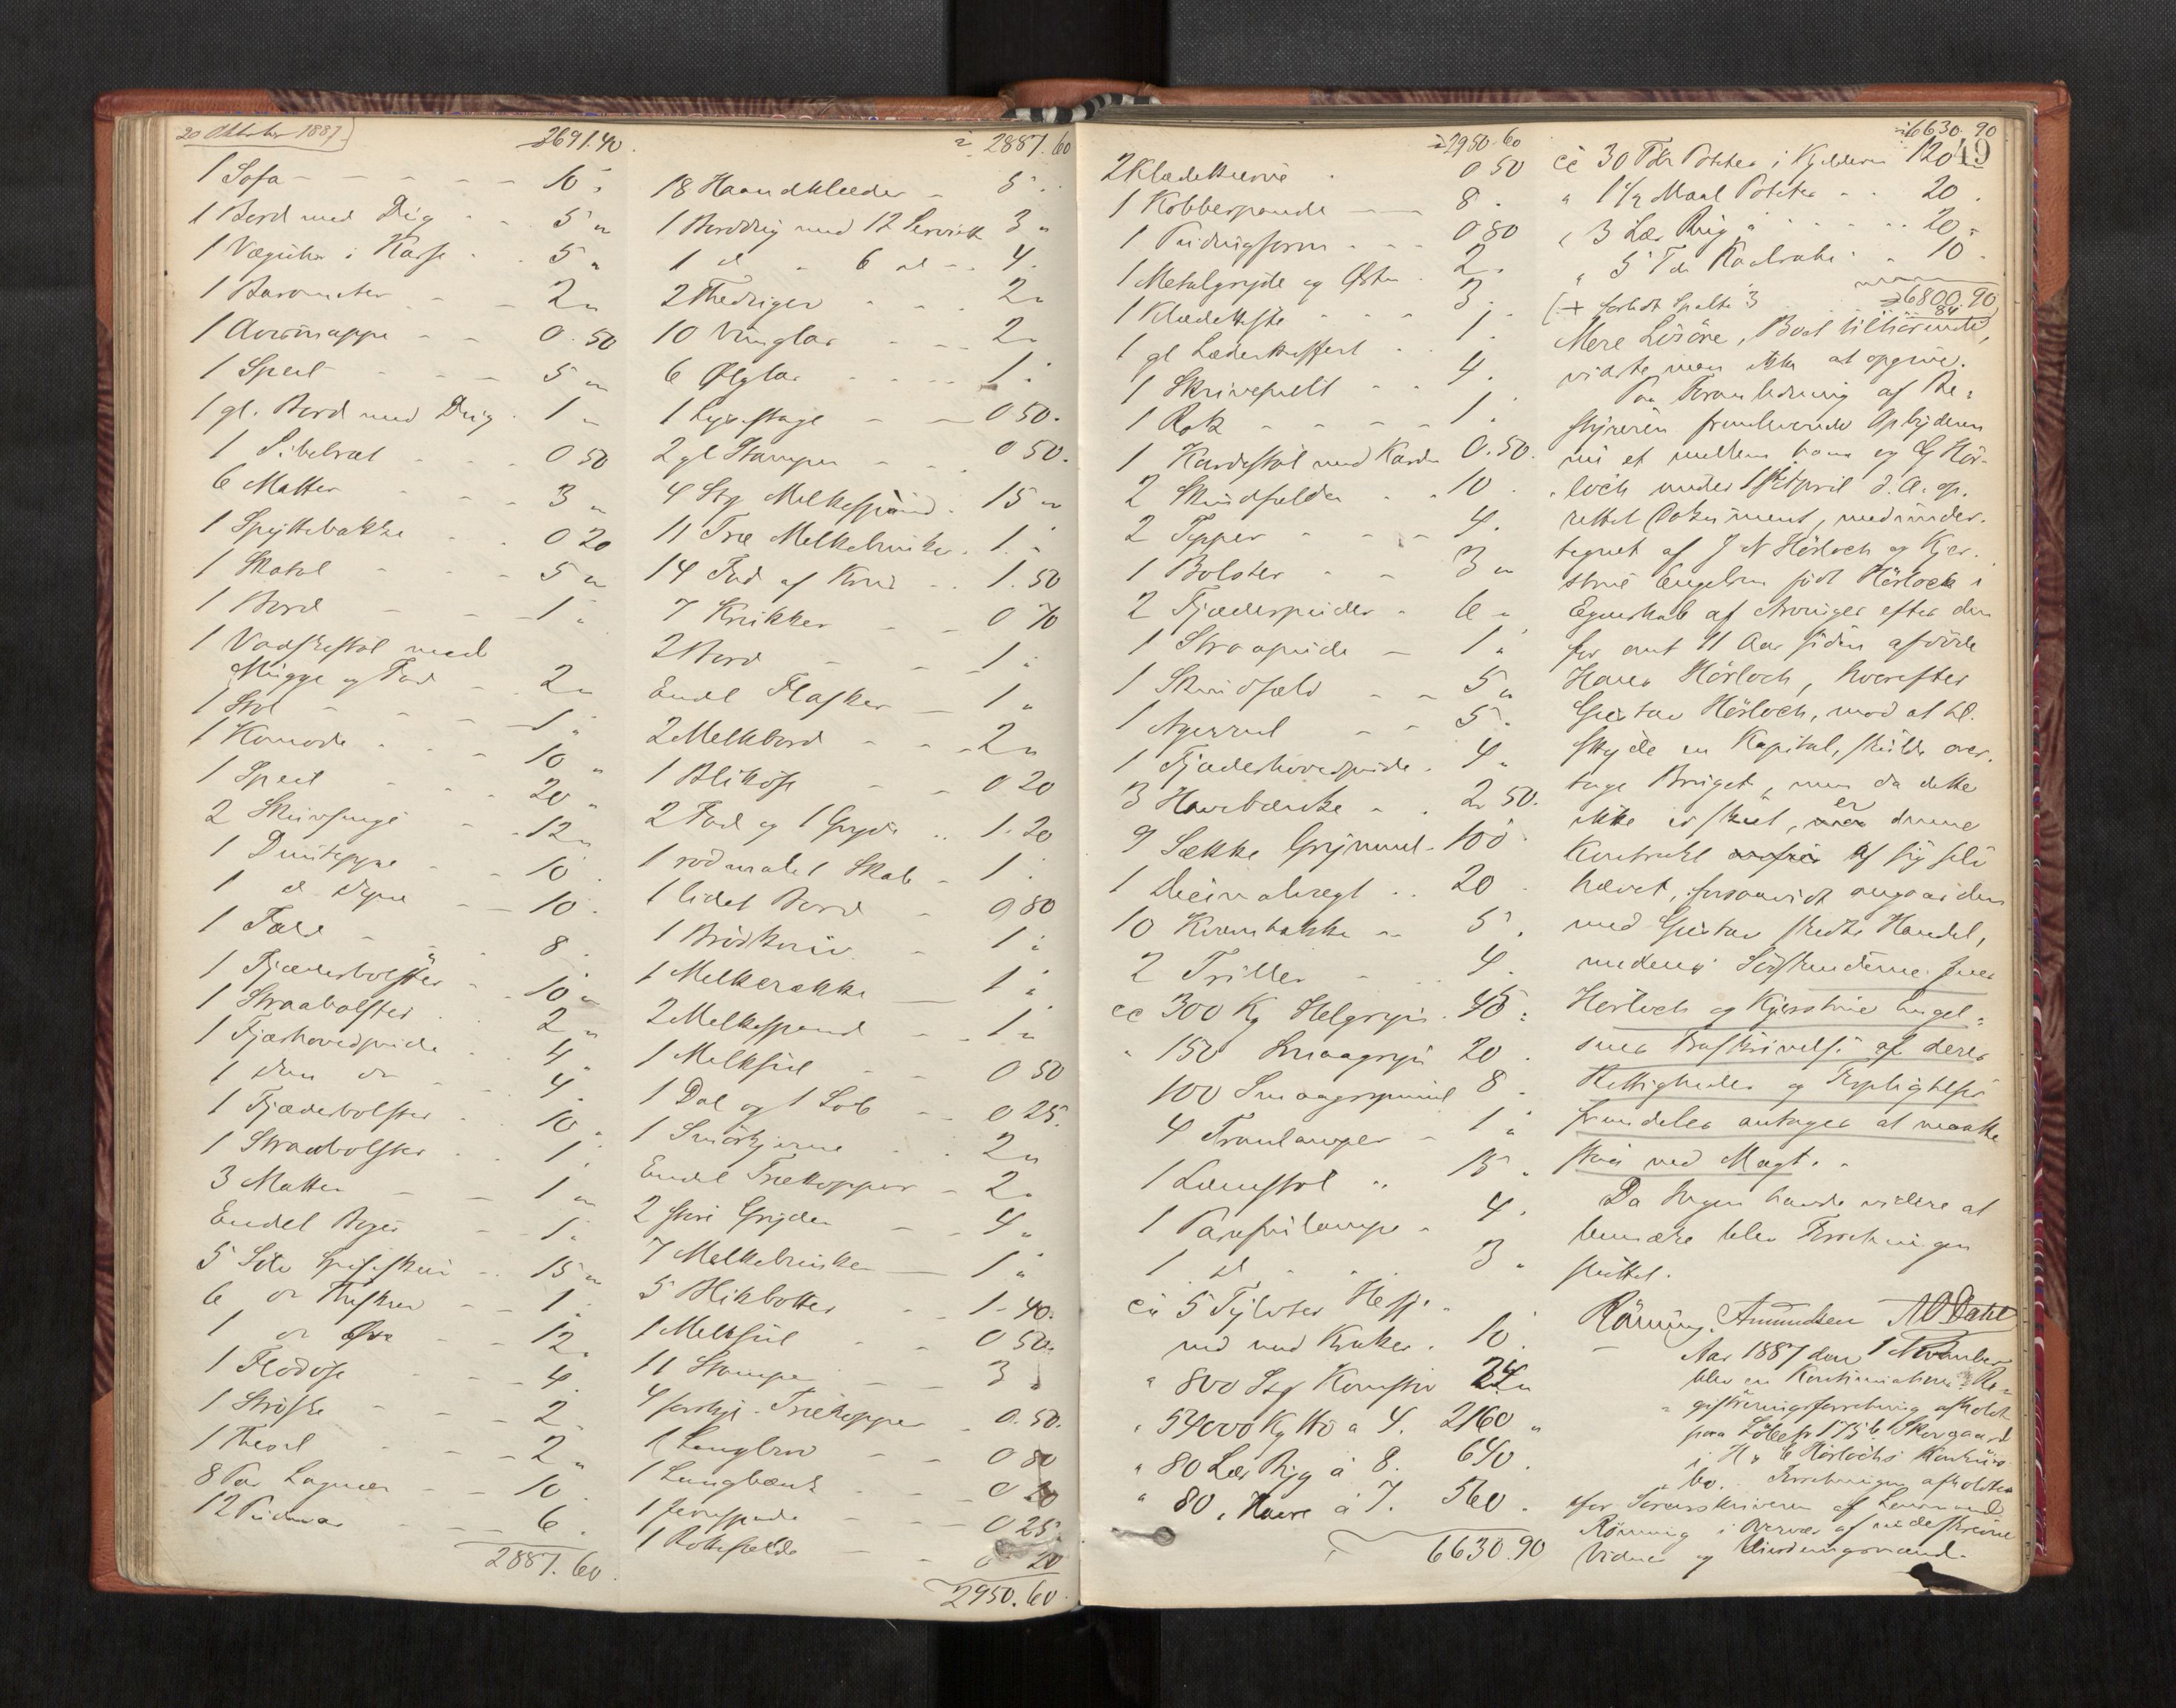 20 Oktober 1887
2691.40.
1 Sofa - - - - 10 "
1 Bord med Dug - - 5 "
1 Væguhr i Kasse - - 5 "
1 Barometer - - 2 "
1 Avismappe - - 0.50
1 Speil - - - 5 "
1 gl. Bord med Dug . 1 "
1 Sibebræt - - 0 50
6 Matter - - 3 "
1 Spyttebakke - - 0 20
1 Skatol - - - 5 "
1 Bord - - - 1 "
1 Vadskestol med
Mugge og Fad - 2 "
1 Stol - - - 1 "
1 Komode - - - 10 "
1 Speil - - 20 "
2 Skuvsenge - 12 "
1 Duntæppe - - 10 "
1 d Dyne - - 10 .
1 Fæld - - - 8 .
1 Fjæderbolster - 10 "
1 Straabolster - 2 "
1 Fjærhovedpude - 4 "
1 dun do - - 4 .
1 Fjæderbolster . 10 .
1 Straabolster - - 1 .
3 Matter - - 1 "
Endel Bøger - - 1 "
5 Sølv Spiseskeer - 15 "
6 do Theskeer - - 1 .
1 do Øse - - 12 .
1 Flødøse - - 4 .
1 Strøske - - - 2
1 Thesil - - - 2 "
8 Par Lagener - - 10 .
12 Pudevar - - 6 .
2887.60.
2887.60
18 Haandklæder - 5 .
1 Borddug med 12 Serviett 3 "
1 d " 6 d - 4 .
2 Theduger - - 2 "
10 Vinglas - - - 2 "
6 Ølglas - - - 1 "
1 Lysestage - - 0 50.
2 gl Stamper - - 0 50.
4 Stg Melkespand . 15 "
11 Træ Melkebunker . 1 . "
14 Fad af Krus - . 1.50
7 Krukker - - 0 70
2 Bord - - - 1 "
Endel Flasker - 1 "
2 Melkbord - - 2 "
1 Bliköse - - 0 20
2 Fad og 1 Gryde . . 1.20
1 rødmalet Skab - 1 .
1 lidet Bord - 0 80
1 Brödkniv - 1 "
1 Melkerække - 1 "
2 Melkespand - 1 "
1 Melksil - - 0 50
1 Dal og 1 Løb - - 0 25.
1 Smörkjerne . . 2 "
Endel Trækopper - 2 .
2 store Gryder - 4 "
7 Melkebunker - 1 "
5 Blikbøtter - 1 - 40.
1 Melksil - - 0 50.
11 Stamper - - 3 "
4 forskj. Trækopper - 0.50.
1 Langbord - - 0 80
1 Langbænk - - 0 20
1 Jernspade - - 0 25
1 Kobbekjedel - - 0 20
2950.60.
49
2950.60
2 Klædekurve . 0 50
1 Kobberpande - - 8 .
1 Pudingform - - - 0 80
1 Metalgryde og Øsen . 2 .
1 Klædekiste - - - 3 .
1 gl Læderkuffert - . 1 .
1 Skrivepult - - 4 .
1 Rok - - - - 1 .
1 Kardestol med Karder 0.50.
2 Skindfelder - . 10 .
2 Tepper - - - 4 .
1 Bolster - - 3 "
2 Fjæderpuder - 6 "
1 Straapude - 1 "
1 Skindfæld - - 5 "
1 Agerrul - - 5 "
1 Fjæderhovedpude . 4 "
3 Havebænke - . 2.50.
9 Sække Grynmel - 100 .
1 Decimalvægt . . 20 .
10 Kornbakke - . 5 .
2 Triller - - - 4 .
cc 300 Kg Helgryn . 45 "
" 150 Smaagryn 20 .
100 Smaagrynmel 8 .
4 Tranlamper - 1 "
1 Lænestol " 15 .
1 Parafinlampe - 4 .
1 d - - 3 "
ca 5 Tylvter Hesje-
ved med Kraker . 10 .
" 800 Kg Kornstr 24 "
" 54000 Kg Hö a 4. 2160 "
" 80 Læs Byg á 8. 640 .
" 80 , Havre á 7. 560 .
6630.90
6630.90
cc 30 Tdr Poteter i Kjelderen 120 .
" 1 1/2 Maal Poteter - - 20 .
" 3 Læs Rug - - - 20 "
" 5 Tdr Kaalrabi - " 10 .
6800.90
(+ forledt Spalte 3 84
Mere Lösöre, Boet tilhörende,
vidste man ikke at opgive.
Paa Foranledning af Be-
styreren fremlevende Opbyderen
nu et mellem ham og G Hör-
loch under 1ste April d. A. op-
rettet Dokument, medunder-
tegnet af J N Hörloch og Kjer-
stine Engelsen født Hörloch i
Egenskab af Arvinger efter den
for omt 11 Aar siden afdöde
Hans Hörloch, hvorefter
Gustav Hörloch, mod at til-
skyde en Kapital, skulde over-
tage Bruget, men da dette
ikke er skeet, er denne
Kontrakt af sig selv
hævet, forsaavidt angaar den
med Gustav skedte Handel,
medens Södskenderne Jens
Hörloch og Kjerstine Engel-
sens Fraskrivelse af deres
Rettigheder og Forpligtelser
fremdeles antages at maatte
staa ved Magt. -
Da Ingen havde videre at
bemærke blev Forretningen
sluttet.
Rönning. Amundsen A O Dahl
Aar 1887 den 1 November
blev en Kontinuations-Re-
gistreringsforretning afholdt
paa Löbe No 175 b Skovgaard
i H. E Hörlochs Konkurs-
bo. - Forretningen afholdtes
for Sorenskriveren af Lensmand
Rönning i Overvær af underskrevne
Vidner og Vurderingsmænd.